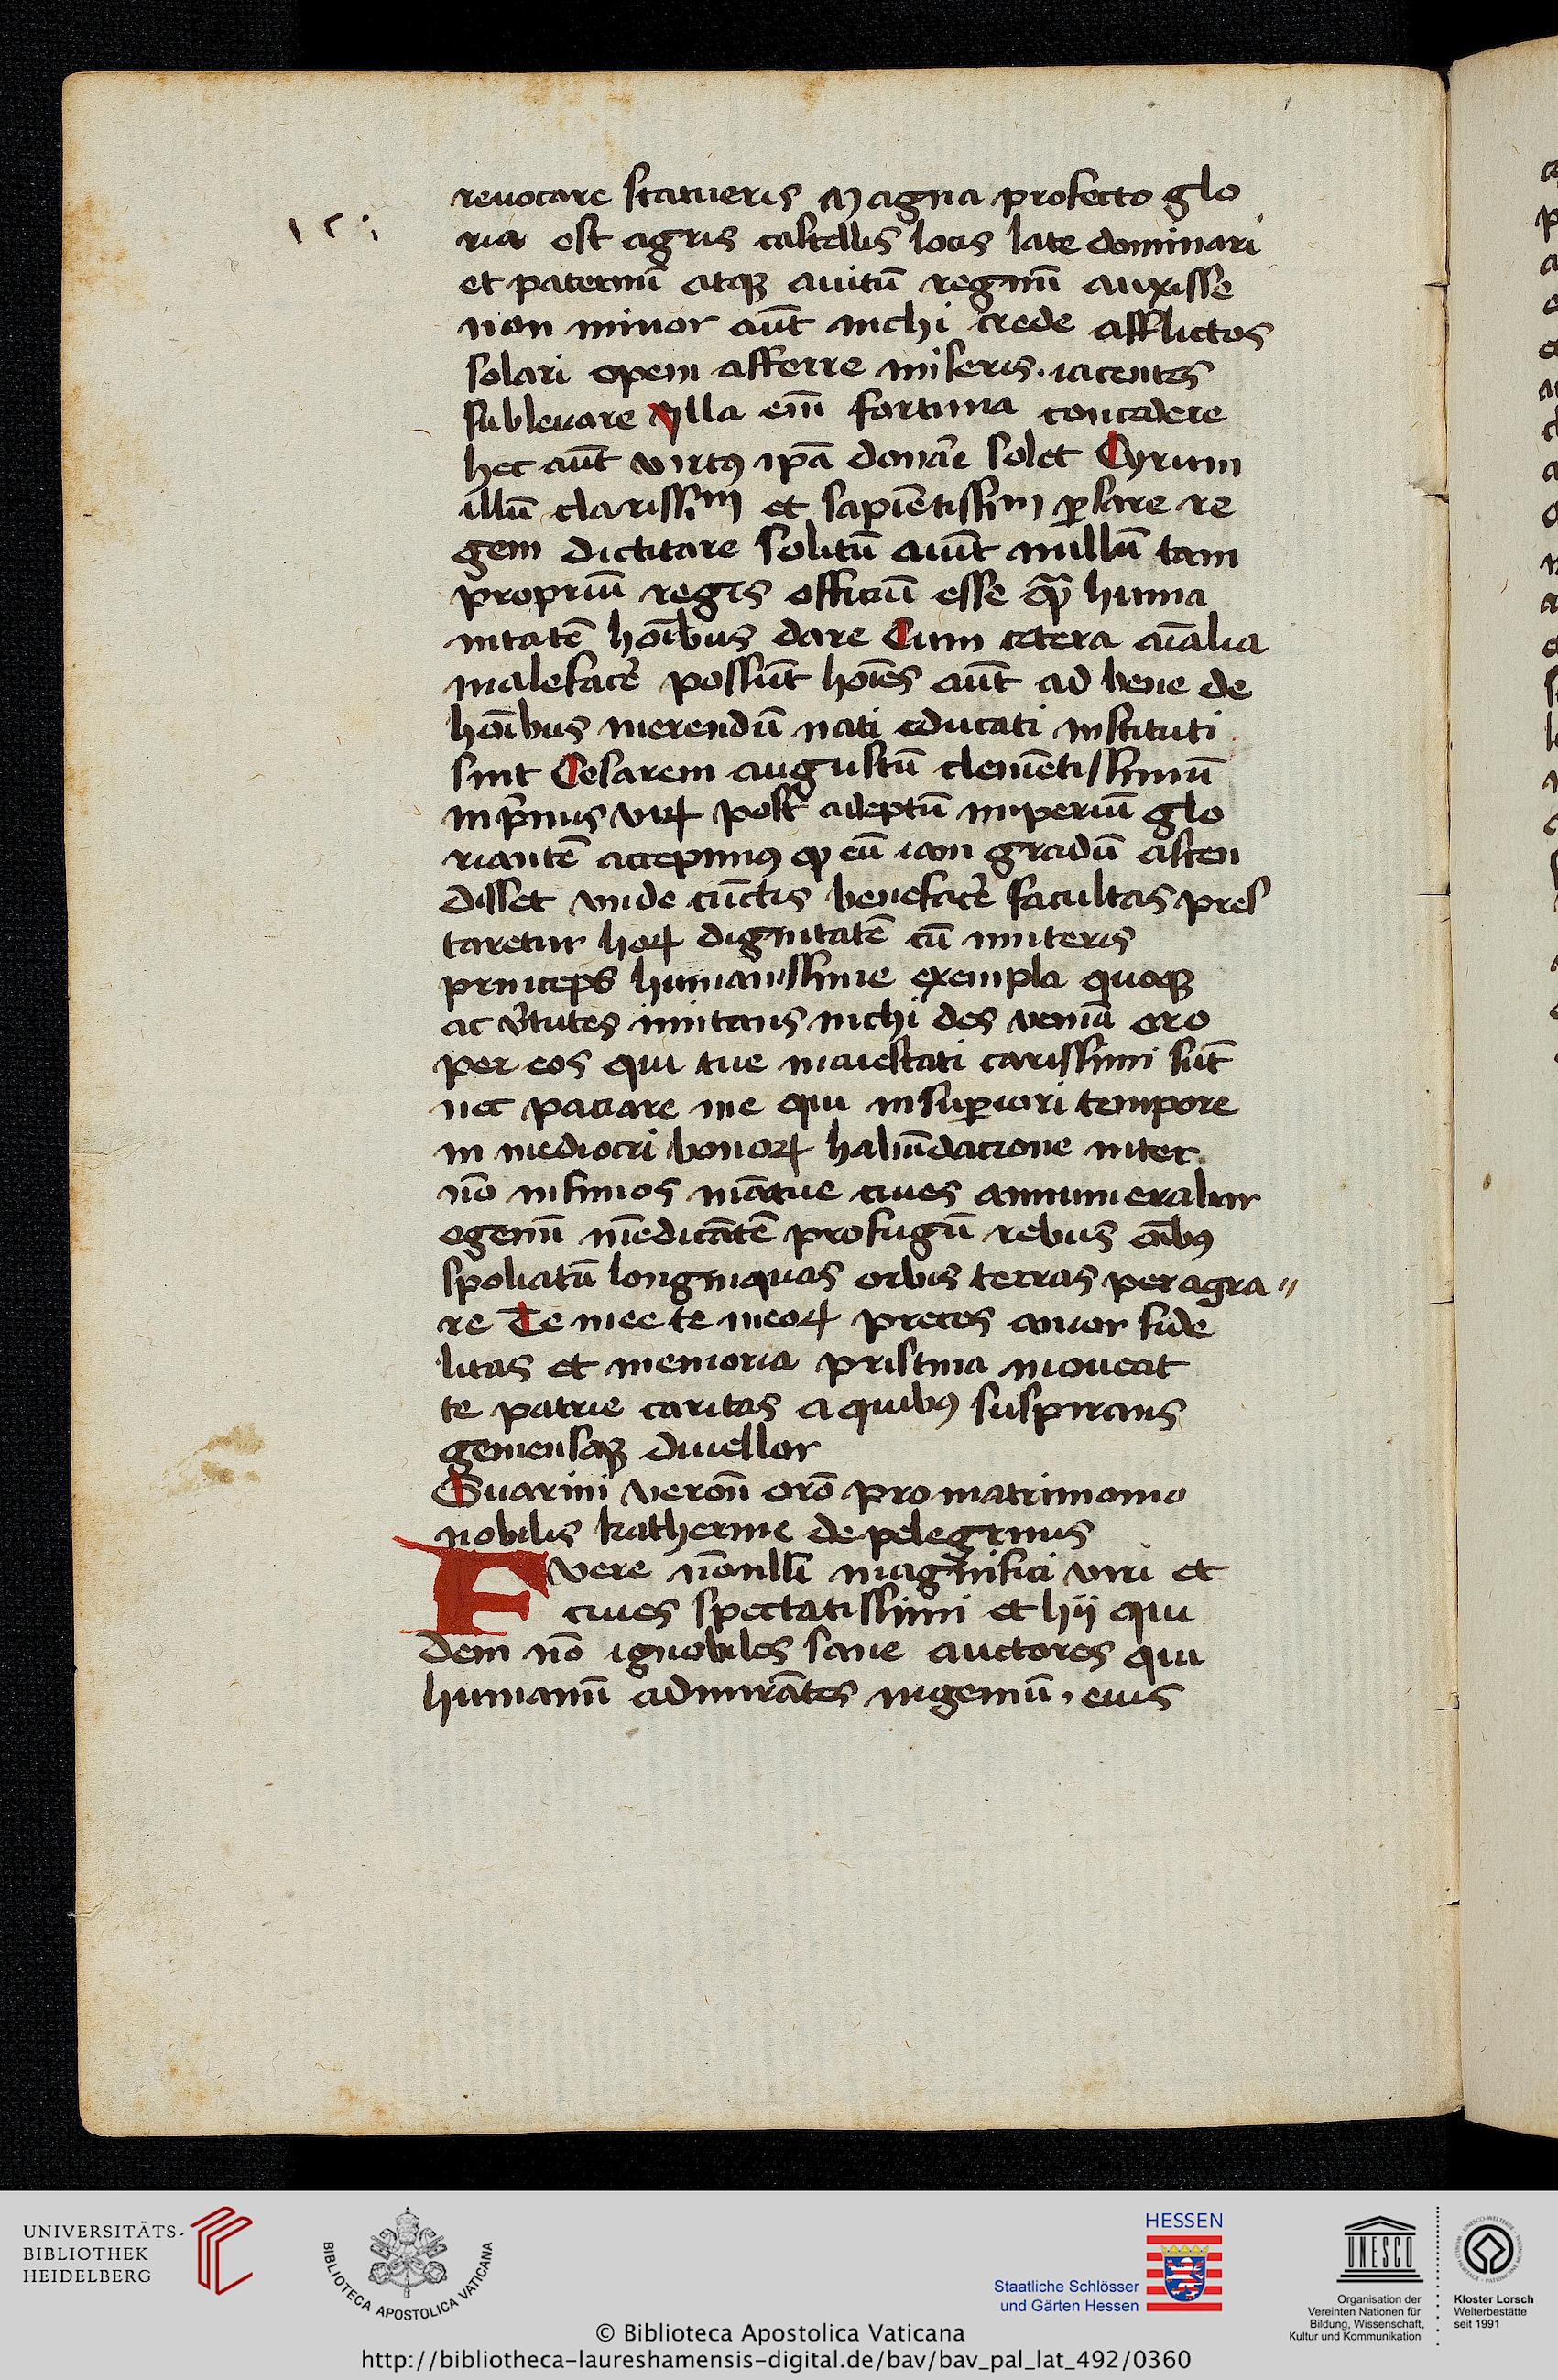 reuocare statueris Magna profecto glo
ria est agris castellis locis late dominari
et paternū atqꝫ auitū regnū auxisse
non minor aūt michi crede afflictos
solari opem afferre miseris · iacentes
subleuare Illa eīm fortuna concedere
hec aūt virtꝰ ip̄a donare solet Cyrum
illū clarissim et sapiētissim ꝑsare re
gem dictitare solitū aiūt nullū tam
propriū regis officiū esse qᷓ huma
nitatē hōibus dare Cum cetera aīalia
malefacẽ possūt hoīes aūt ad bene de
hōibus merendū nati educati instituti
sint Cesarem augustū clemētissimū
inpͥmis viꝝ post adeptū imperiū glo
riantē accepimꝰ ꝙ cū iam gradū ascen
disset vnde cūctis benefacẽ facultas pres
taretur hoꝝ dignitatē cū miteris
princeps humanissime exempla quoqꝫ
ac v̄tutes imitans michi des veniā oro
per eos qui tue maiestati carissimi sūt
nec paciare me qui insuꝑiori tempore
in mediocri bonoꝝ habūdacione inter
nō infimos mātue ciues annumerabar
egenū mēdicātē profugū rebus oībꝰ
spoliatū longinquas orbis terras peragra〃
re Te mee te meoꝝ preces amor fide
litas et memoria pristina moueat
te patrie caritas a quibꝰ suspirans
gemensqꝫ diuellor
Guarini veroñ orō pro matrimonio
nobilis katherine de pelegrinis
Fvere nōnulli magnifici viri et
ciues spectatissimi et hij qui
dem nō ignobiles sane auctores qui
humanū admirātes ingeniū · eius
UNIVERSITÄTS-
BIBLIOTHEK
HEIDELBERG
BIBLIOTECA APOSTOLICA VATICANA
HESSEN
Staatliche Schlösser
und Gärten Hessen
UNESCO
Organisation der
Vereinten Nationen für
Bildung, Wissenschaft,
Kultur und Kommunikation
Kloster Lorsch
Welterbestätte
seit 1991
© Biblioteca Apostolica Vaticana
http://bibliotheca-laureshamensis-digital.de/bav/bav_pal_lat_492/0360